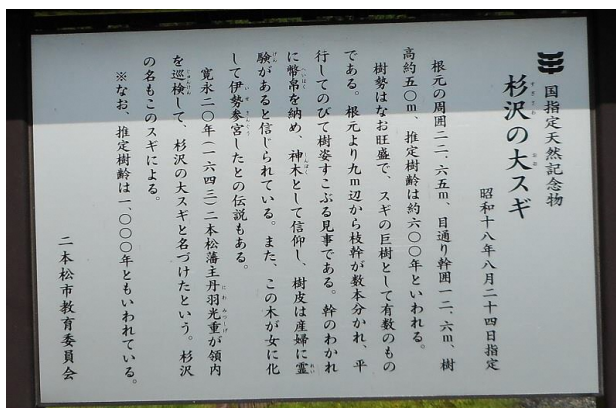 国指定天然記念物
杉沢の大スギ
昭和十八年八月二十四日指定
根元の周囲二二、六五m、目通り幹囲一二、六m、樹
高約五〇m、推定樹齢は約六〇〇年といわれる。
樹勢はなお旺盛で、スギの巨樹として有数のもの
である。根元より九m辺から枝幹が数本分かれ、平
行してのびて樹姿すこぶる見事である。幹のわかれ
に幣帛を納め、神木として信仰し、樹皮は産婦に霊
験があると信じられている。また、この木が女に化
して伊勢参宮したとの伝説もある。
寛永二〇年(一六四三)二本松藩主丹羽光重が領内
を巡検して、杉沢の大スギと名づけたという。杉沢
の名もこのスギによる。
※なお、推定樹齢は一、〇〇〇年ともいわれている。
二本松市教育委員会